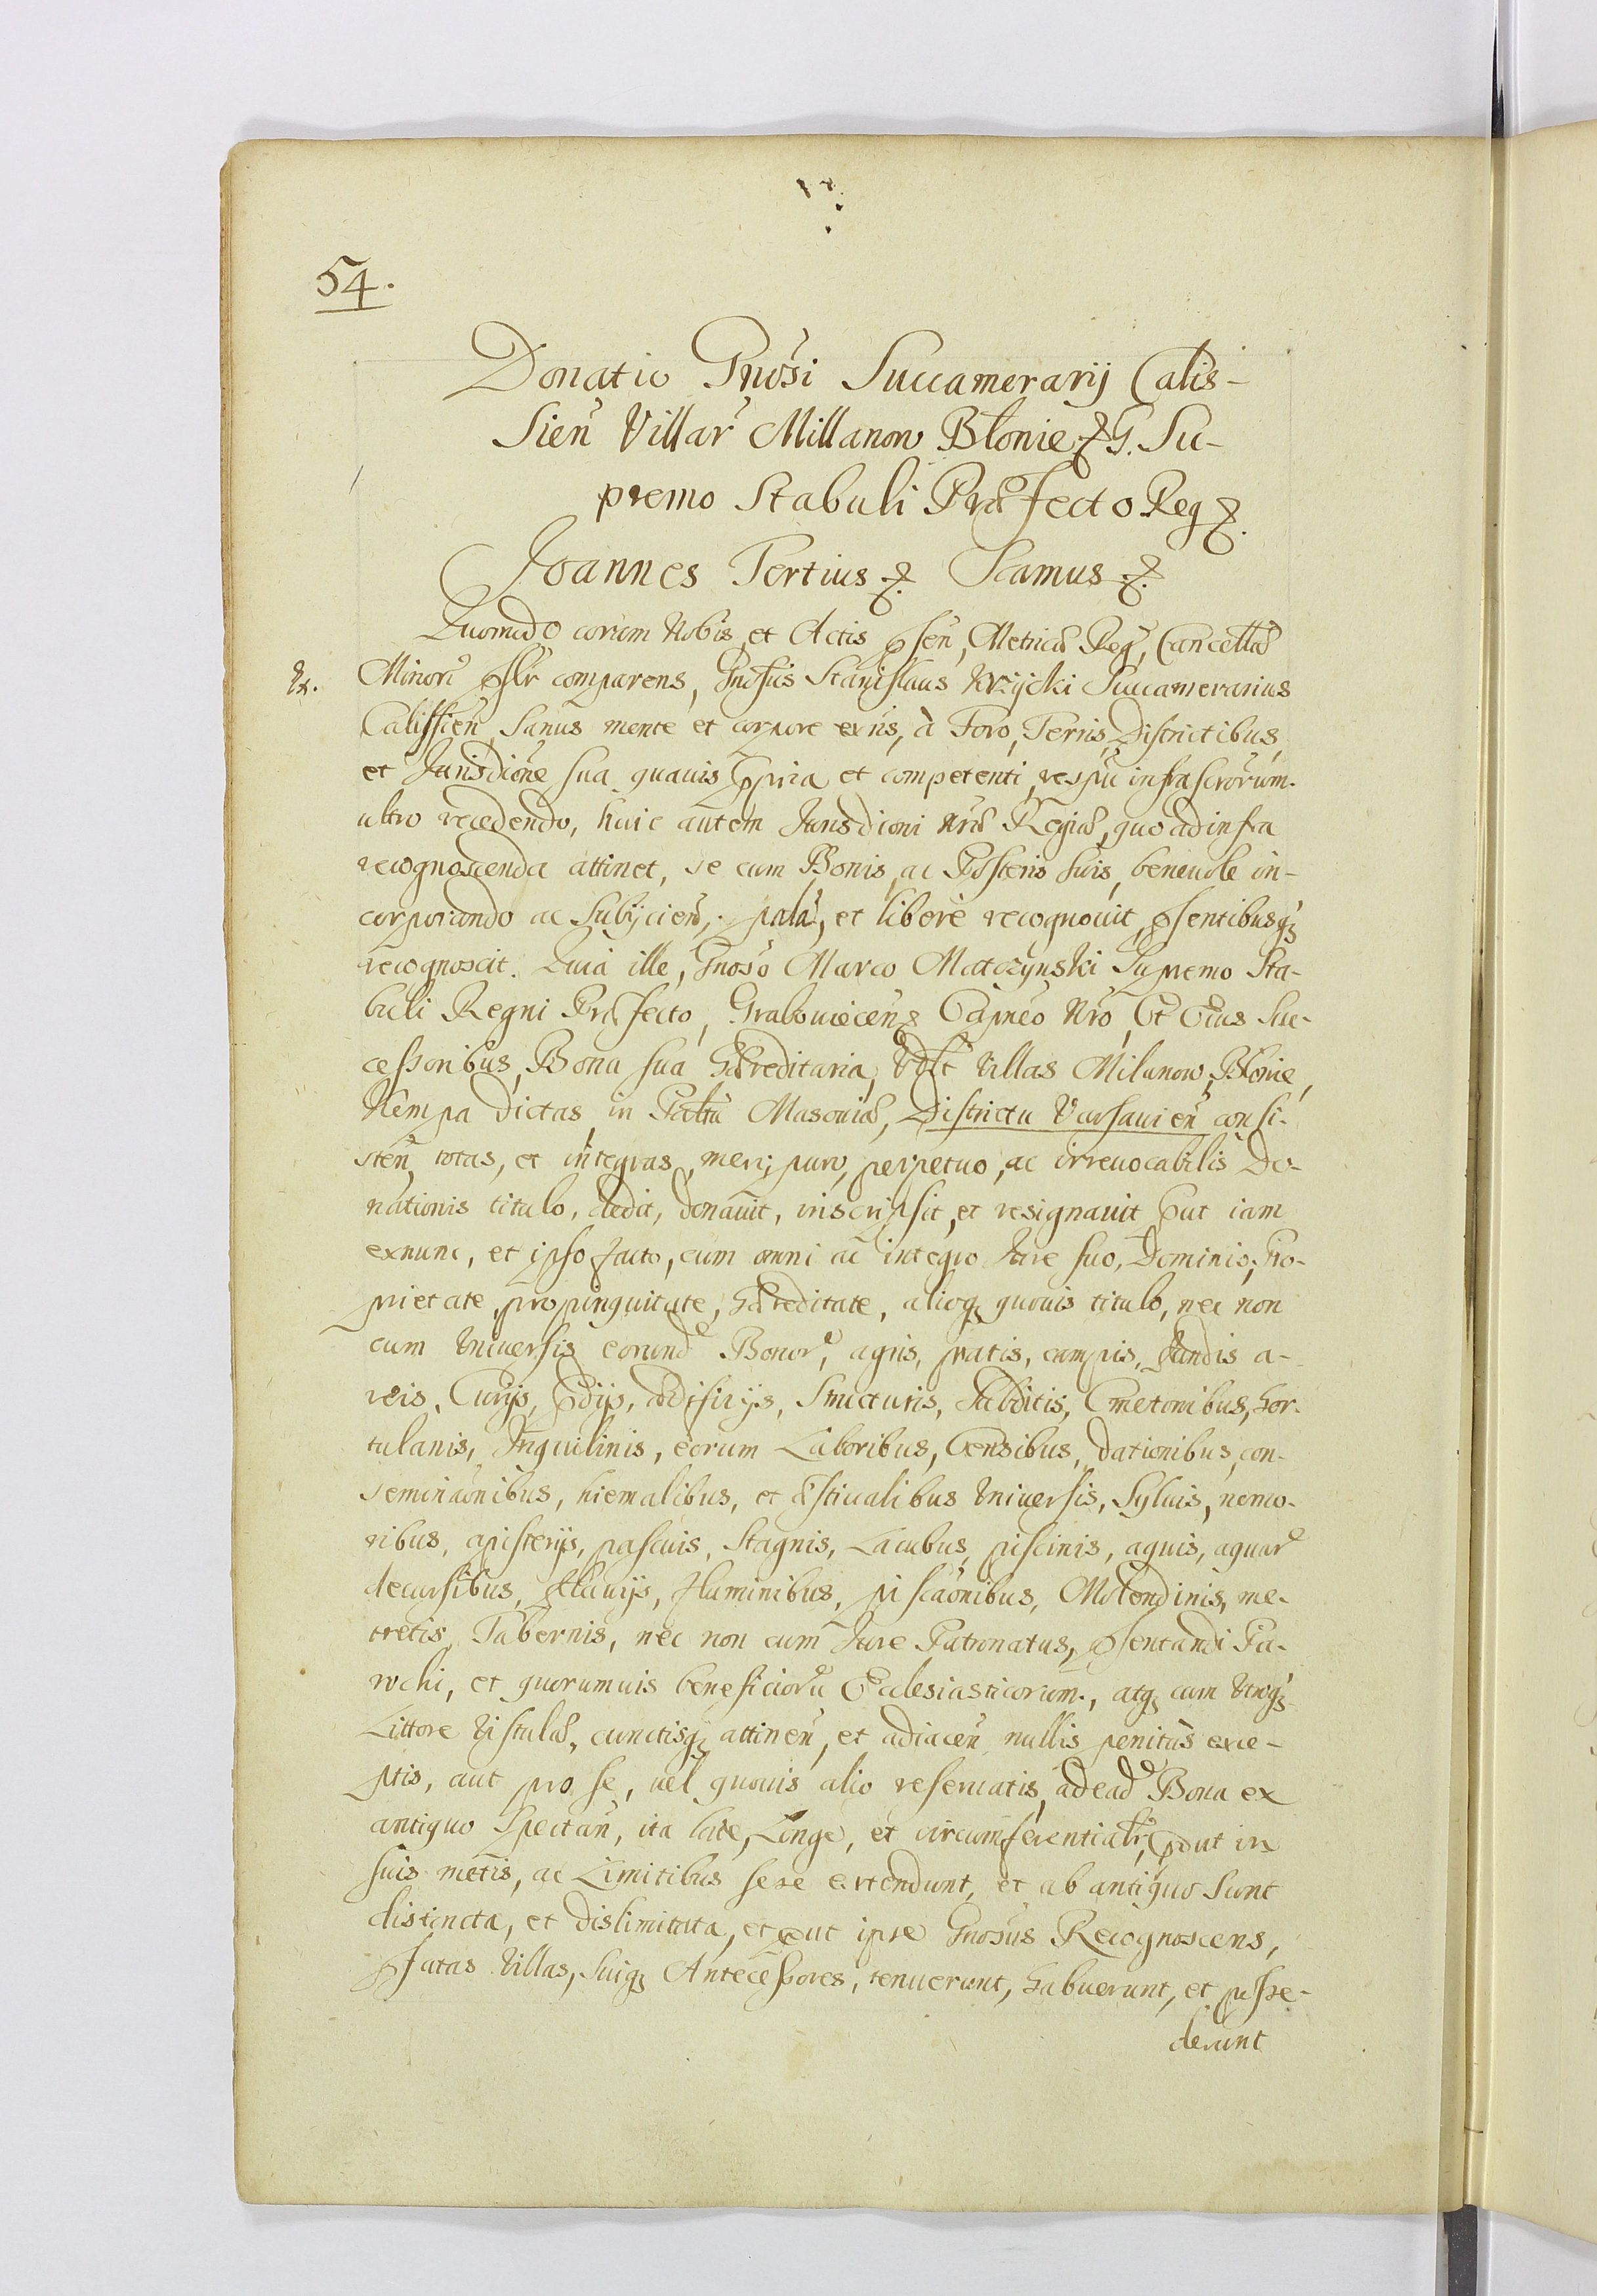 54.
Donatio Gnosi Succamerarij Calis-
sien Villar Millanow Błonie & G. Su-
premo Stabuli Præfecto Reg &.
Joannes Tertius &. Scamus &.
Quomodo coram Nobis, et Actis psen, Metricæ Reg, Cancellæ
Minoris pslr comparens, Gnosus Stanislaus Krzycki Succamerarius
Calissien, Sanus mente et corpore exns, à Foro, Terris, Districtibus,
et Jurisdione sua quavis ppria et competenti, respu infrascrorum.
ultro recedendo, huic autem Jurisdioni Nræ Regiæ, quo ad infra
recognoscenda attinet, se cum Bonis, ac Posteris suis, benevole in-
corporando ac Subijcien, palã, et liberè recognovit, psentibusq
recognoscit. Quia ille, Gnoso Marco Matczynski Supremo Sta-
buli Regni Præfecto, Grabouiecen & Capneo Nro, Et Eius Suc-
cessoribus, Bona sua Hæreditaria, Vdlt Villas Milanow, Błonie,
Kempa dictas, in Paltu Masoviæ, Districtu Varsavien consi-
sten, totas, et integras, meri, puro, perpetuo, ac irrevocabilis Do-
nationis titulo, dedit, donavit, inscripsit, et resignavit Put iam
exnunc, et ipso facto, cum omni ac integro Jure suo, Dominio, Pro-
prietate, propinquitate, Hæreditate, alioq quovis titulo, nec non
cum Universis eorund Bonor, agris, pratis, campis, fundis a-
reis, Curijs, Pdijs, ædificijs, Structuris, Subditis, Cmetonibus, hor-
tulanis, Inquilinis, eorum Laboribus, Censibus, dationibus, con-
seminaonibus, hiemalibus, et æstivalibus Universis, Sylvis, nemo-
ribus, apisterijs, pascuis, Stagnis, Lacubus, piscinis, aquis, aquar
decursibus, fluvijs, fluminibus, piscaonibus, Molendinis, me-
tretis, Tabernis, nec non cum Jure Patronatus, psentandi Pa-
rochi, et quorumvis beneficioru Ecclesiasticorum., atq cum Utroq
Littore Vistulæ, cunctisq attinen, et adiacen nullis penitùs exce-
ptis, aut pro se, vel quovis alio reservatis, ad ead Bona ex
antiquo Spectan, ita late, Longe, et circumferentialr, Put in
suis metis, ac Limitibus sese extendunt, et ab antiquo sunt
distincta, et dislimitata, et put ipse Gnosus Recognoscens,
pfatas Villas, Suiq Antecessores, tenuerunt, habuerunt, et posse-
derunt